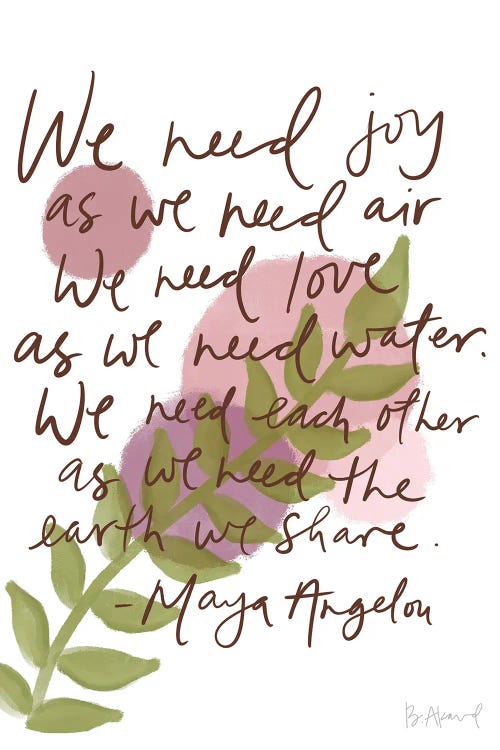 We need joy
as we need air
We need love
as we need water.
We need each other
as we need the
earth we share.
- Maya Angelou